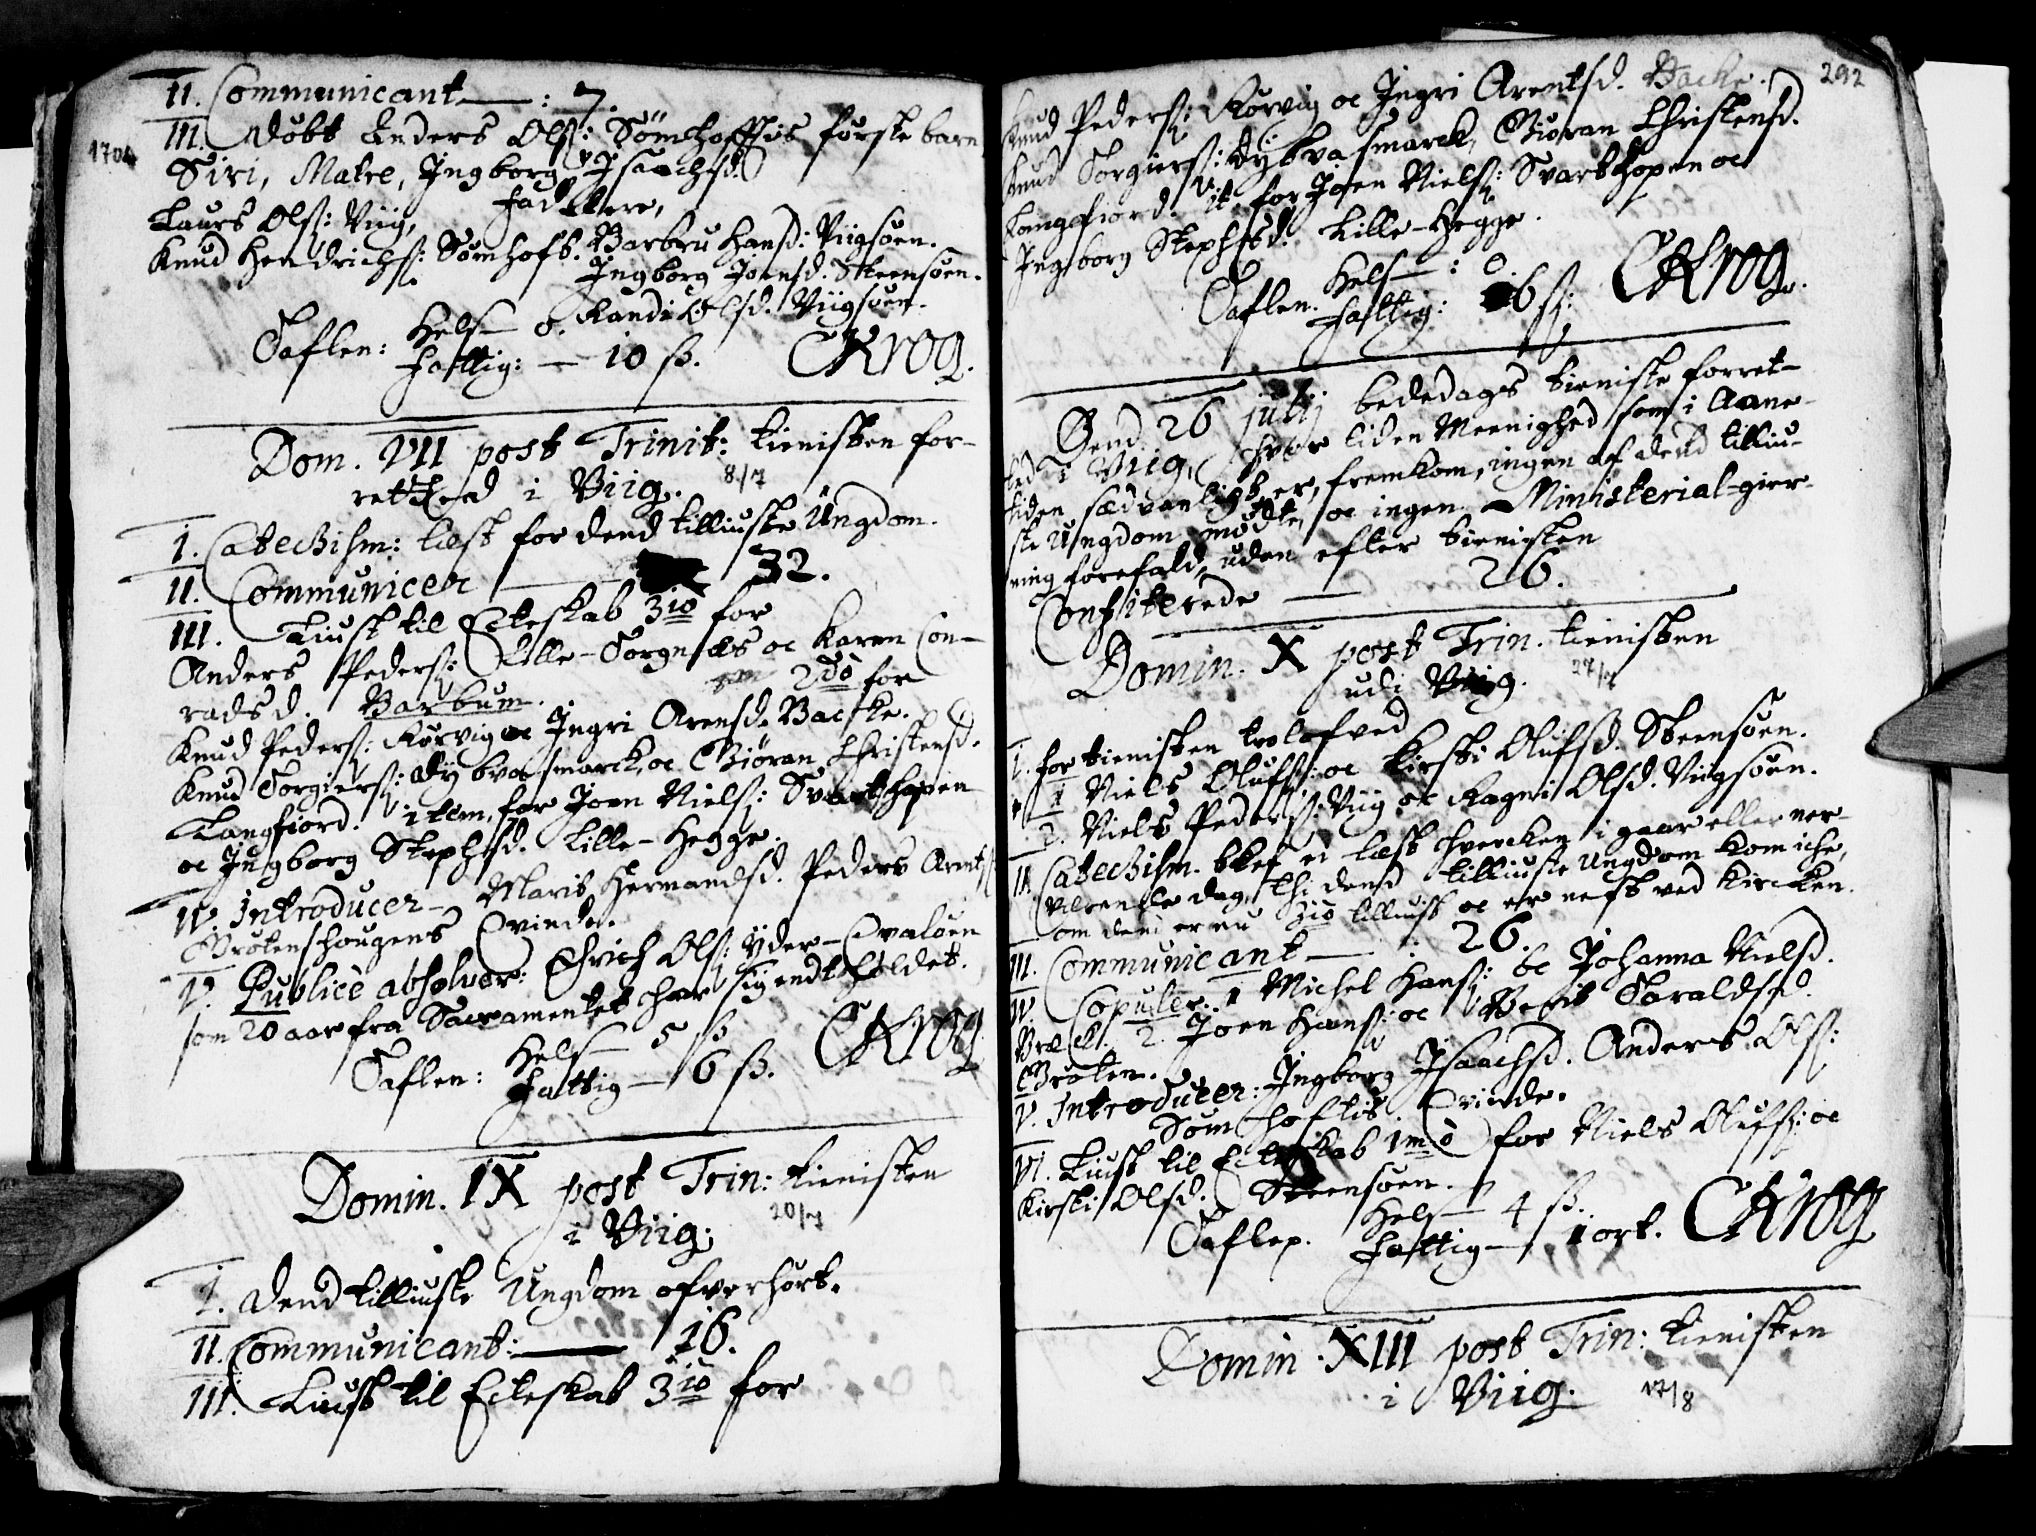 1704
II. Communicant — : 7.
III. Døbt Anders Olss: Sömhoffhus første barn
Siri, Matre, Ingborg Isaachsd
Faddere,
Laurs Olss: Viig,
Knud Hendrichss: Sømhofs. Barbru Hansd: Viigsøen.
Ingborg Joensd. Steensøen.
Randi Olsd. Viigsøen.
Taflen: Hels — 8.
Fattig: — 10 ss. CKrog.
Dom. VII post Trinit: tienisten for-
retted i Viig. 8/7
I. Catechism: læst for dend tilliuste Ungdom.
II. Communicer — 32.
III. Liust til Ecteskab 3io for
Anders Pederss: Lille-Torgnæs oc Karen Con-
radsd. Barbum. 2do for
Knud Pederss: Kørvig oc Ingri Arensd. Backe.
Knud Torgierss: Dybvasmarck, oc Giøran Christensd.
Langfiord. item, for Joen Nielss: Svartshopen
oc Ingborg Stephsd. Lille-Hegge.
IV. Introducer — Maris Hermandsd. Peders Arnts
Brotenshougens Qvinde.
V. Publicè absolver: Chrich Olss: Yder-Qvaløen
som 20 aar fra Sacramentet har sig endtholdet.
Taflen: Hels — 5 ss
Fattig — 6 ss. CKrog
Domin. IX post Trin: tienisten
i Viig. 20/7
I. Dend tilliuste Ungdom ofverhørt.
II. Communicant: — 16.
III. Liust til Ecteskab 3io for
292
Knud Pederss: Kørvig oc Ingri Arentsd. Backe.
Knud Torgierss: Dybvasmarck, Giøran Christensd.
Langfiord. It. for Joen Nielss: Svartshopen oc
Ingborg Stephsd. Lille-Hegge.
Taflen. Hels — : 0
Fattig: 6 ss: CKrog.
Dend 26 julij bededags tieniste forret-
ted i Viig, hvor liden Meenighed som i Aane-
tiden sædvanligt er, fremkom, ingen af dend tilliu-
ste Ungdom mødte, oc ingen Ministerial-gier-
ning forefald, uden efter tienisten
Confiterede — 26.
Domin. X post Trin. tienisten
udi Viig. 27/7
I. for tienisten trolofved
1 Niels Olufss: oc Kirsti Olufsd. Steensøen.
2. Niels Pederss: Viig oc Ragni Olsd. Viigsøen.
II. Catechism. blef ei læst hvercken i gaar eller ner-
værende dag, thi dend tilliuste Ungdom kom iche,
om dend er nu 3io tilliust oc er nest ved Kircken.
III. Communicant — : 26.
IV. Copuler. 1 Michel Hanss: oc Johanna Nielsd.
Bræck. 2. Joen Hanss: oc Berit Taraldsd.
Broten.
V. Introducer: Ingborg Isaachsd. Anders Olss:
Sømhoflis Qvinde.
VI. Liust til Ecteskab 1mo for Niels Olufss: oc
Kirsti Olsd. Steensøen.
Taflen. Hels — 4 ss.
Fattig — 1 ort. CKrog
Domin. XIII post Trin: tienisten
i Viig. 17/8